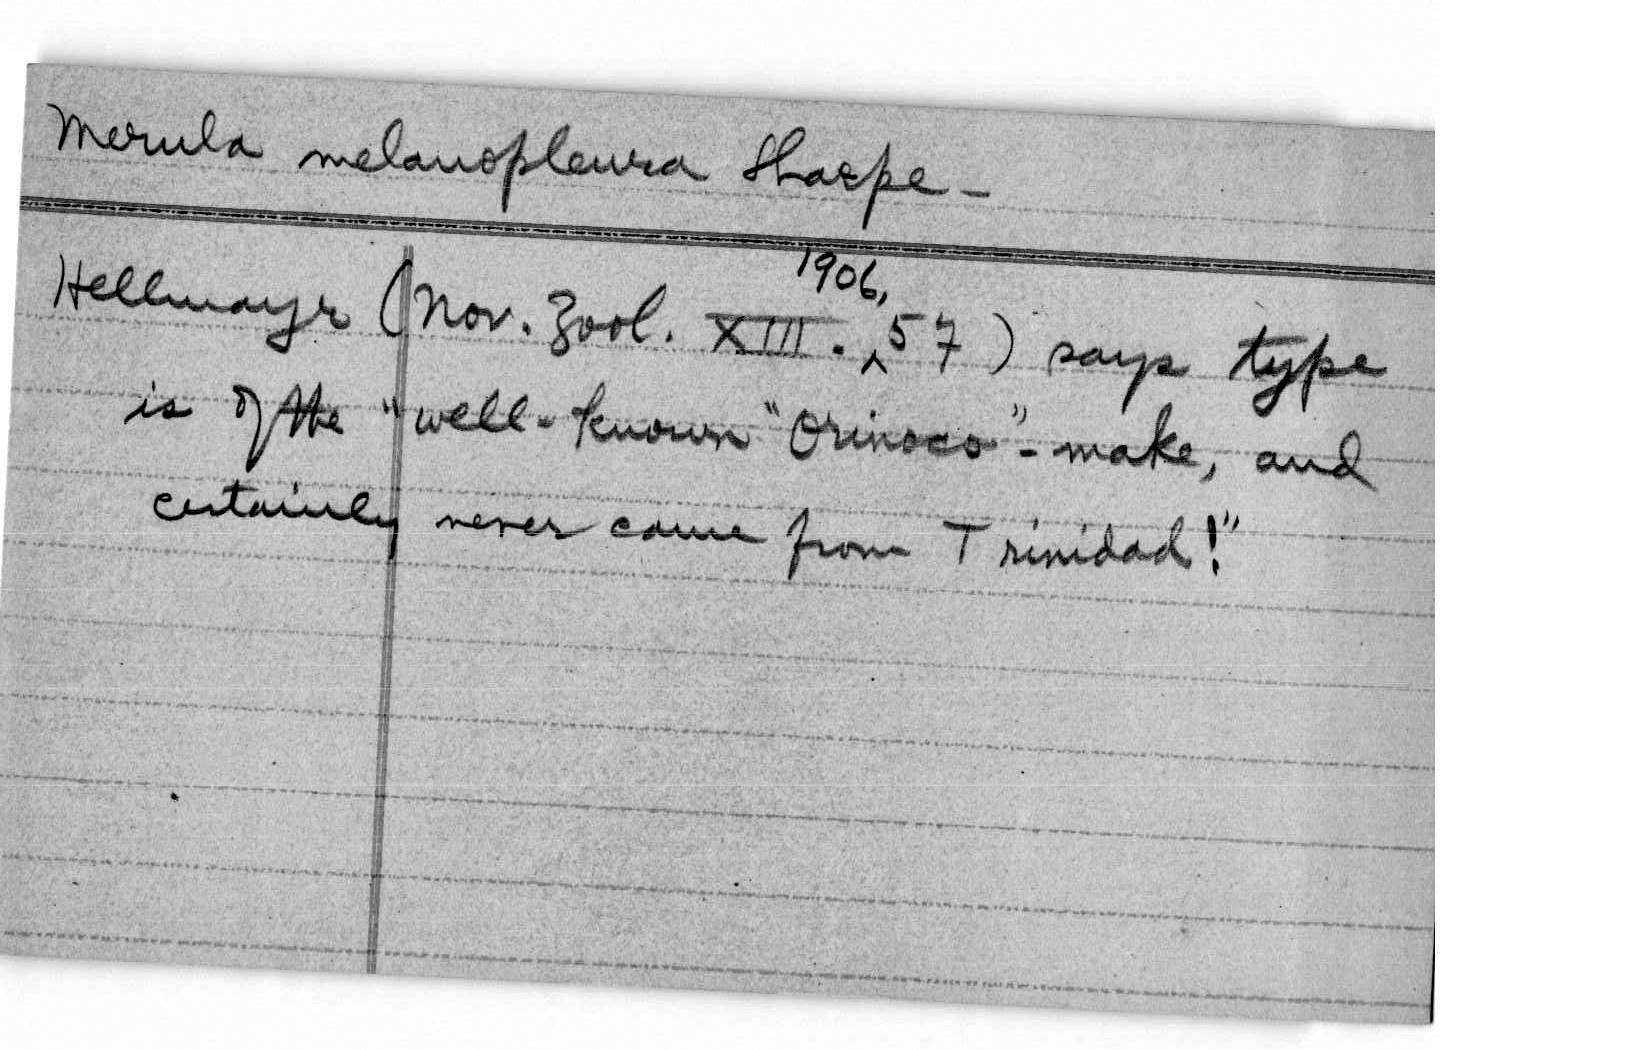 Merula melanopleura Sharpe -
Hellmayr (Nov. Zool. XIII. ‸1906, 57) says type
is of the "well-known "Orinoco"-make, and
certainly never came from Trinidad!"